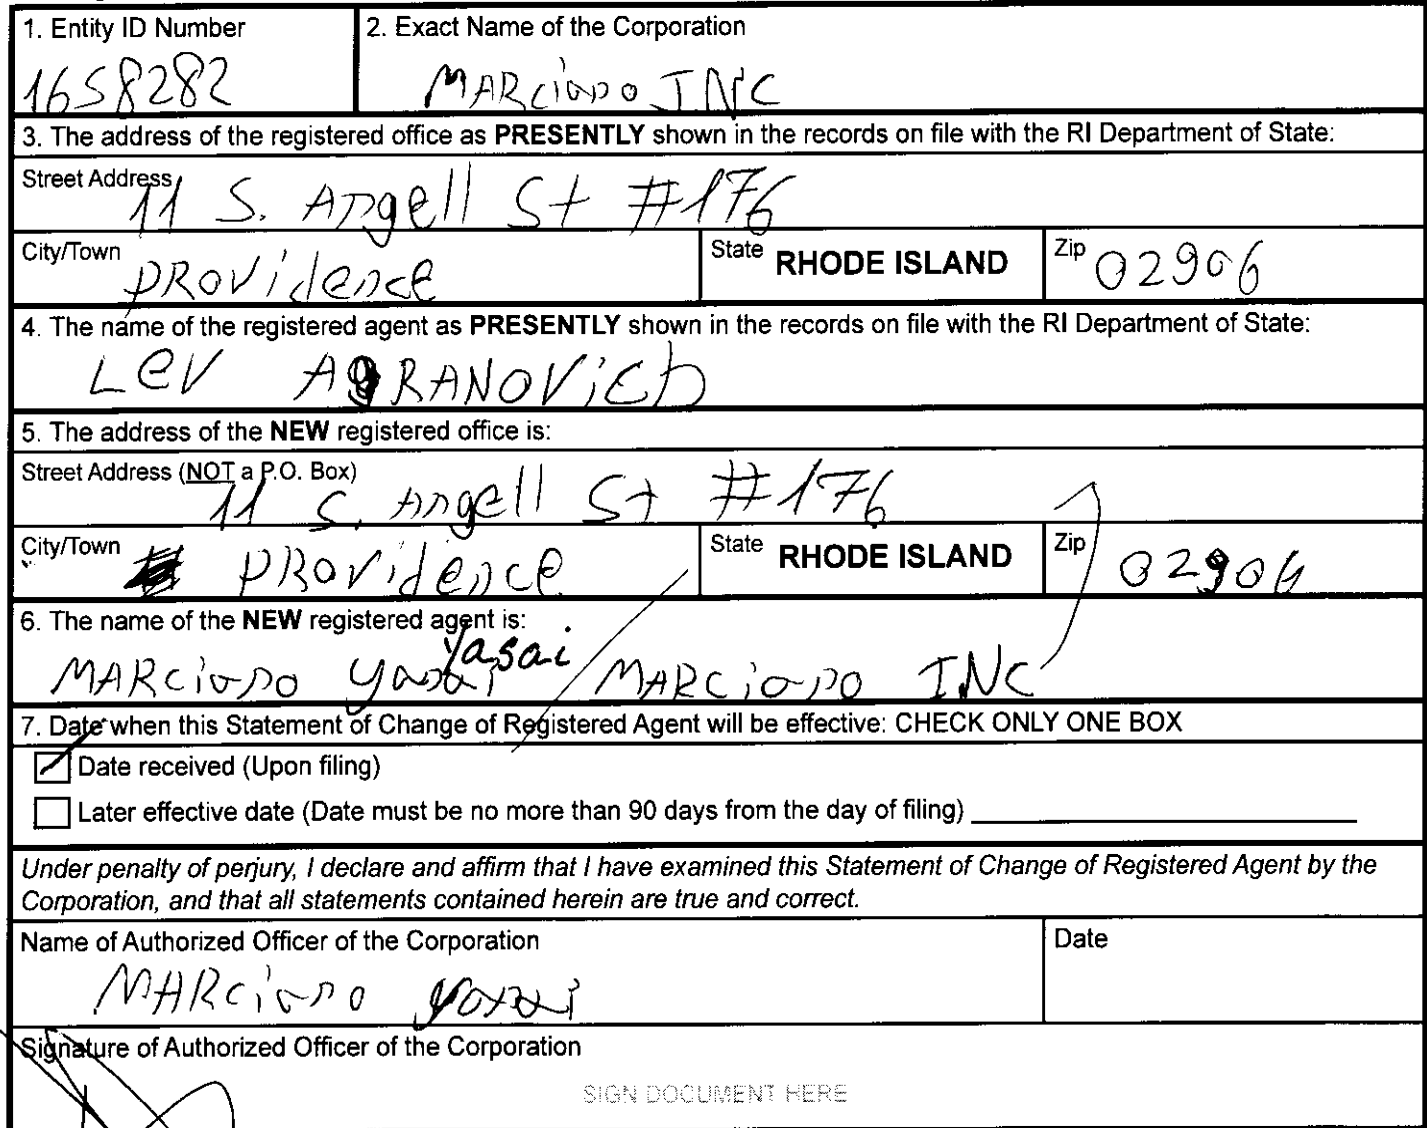 1. Entity ID Number
1658282
2. Exact Name of the Corporation
MARCiano INC
3. The address of the registered office as PRESENTLY shown in the records on file with the RI Department of State:
Street Address
11 S. Angell St #176
City/Town
PROVidence
State RHODE ISLAND
Zip 02906
4. The name of the registered agent as PRESENTLY shown in the records on file with the RI Department of State:
Lev AgRANOVich
5. The address of the NEW registered office is:
Street Address (NOT a P.O. Box)
11 S. Angell St #176
City/Town
PROVidence
State RHODE ISLAND
Zip 02906
6. The name of the NEW registered agent is:
Yasai
MARCiano Yasai MARCiano INC
7. Date when this Statement of Change of Registered Agent will be effective: CHECK ONLY ONE BOX
Date received (Upon filing)
Later effective date (Date must be no more than 90 days from the day of filing)
Under penalty of perjury, I declare and affirm that I have examined this Statement of Change of Registered Agent by the
Corporation, and that all statements contained herein are true and correct.
Name of Authorized Officer of the Corporation
MARCiano Yasai
Date
Signature of Authorized Officer of the Corporation
SIGN DOCUMENT HERE